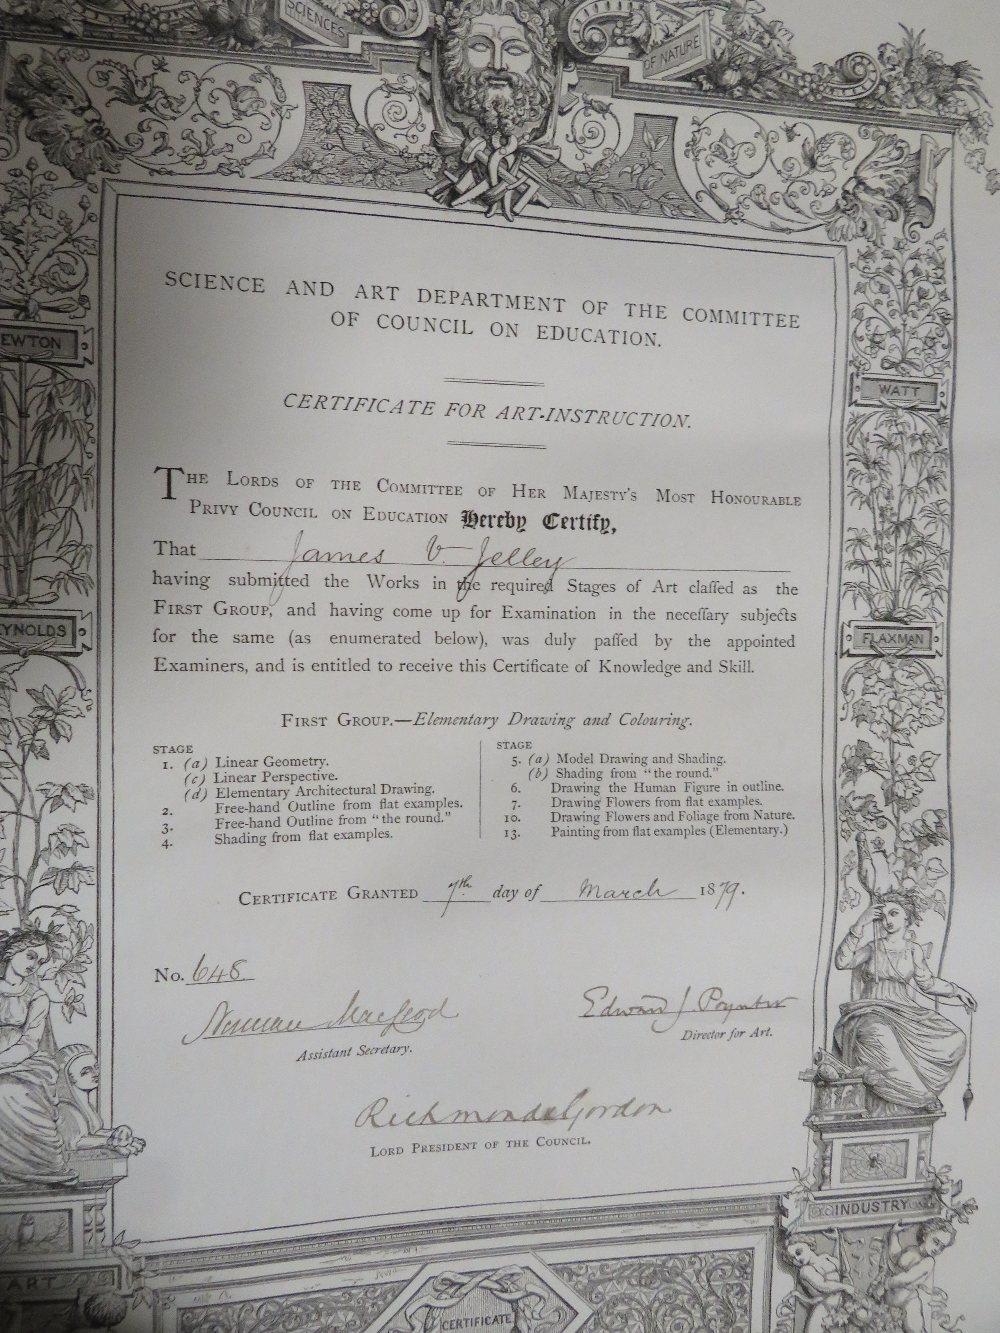 SCIENCES
OF NATURE
SCIENCE AND ART DEPARTMENT OF THE COMMITTEE
OF COUNCIL ON EDUCATION.
EWTON
WATT
CERTIFICATE FOR ART-INSTRUCTION.
THE LORDS OF THE COMMITTEE OF HER MAJESTY'S MOST HONOURABLE
PRIVY COUNCIL ON EDUCATION Hereby Certify,
That James V. Jelley
having submitted the Works in the required Stages of Art claſſed as the
FIRST GROUP, and having come up for Examination in the neceſſary subjects
YNOLDS
FLAXMAN
for the same (as enumerated below), was duly paſſed by the appointed
Examiners, and is entitled to receive this Certificate of Knowledge and Skill.
FIRST GROUP.—Elementary Drawing and Colouring.
STAGE
1. (a) Linear Geometry.
(c) Linear Perspective.
(d) Elementary Architectural Drawing.
2. Free-hand Outline from flat examples.
3. Free-hand Outline from "the round."
4. Shading from flat examples.
STAGE
5. (a) Model Drawing and Shading.
(b) Shading from "the round."
6. Drawing the Human Figure in outline.
7. Drawing Flowers from flat examples.
10. Drawing Flowers and Foliage from Nature.
13. Painting from flat examples (Elementary.)
CERTIFICATE GRANTED 7th day of March 1879.
No. 648
Norman MacLeod
Assistant Secretary.
Edward J. Poynter
Director for Art.
Richmond & Gordon
LORD PRESIDENT OF THE COUNCIL.
INDUSTRY
ART
CERTIFICATE